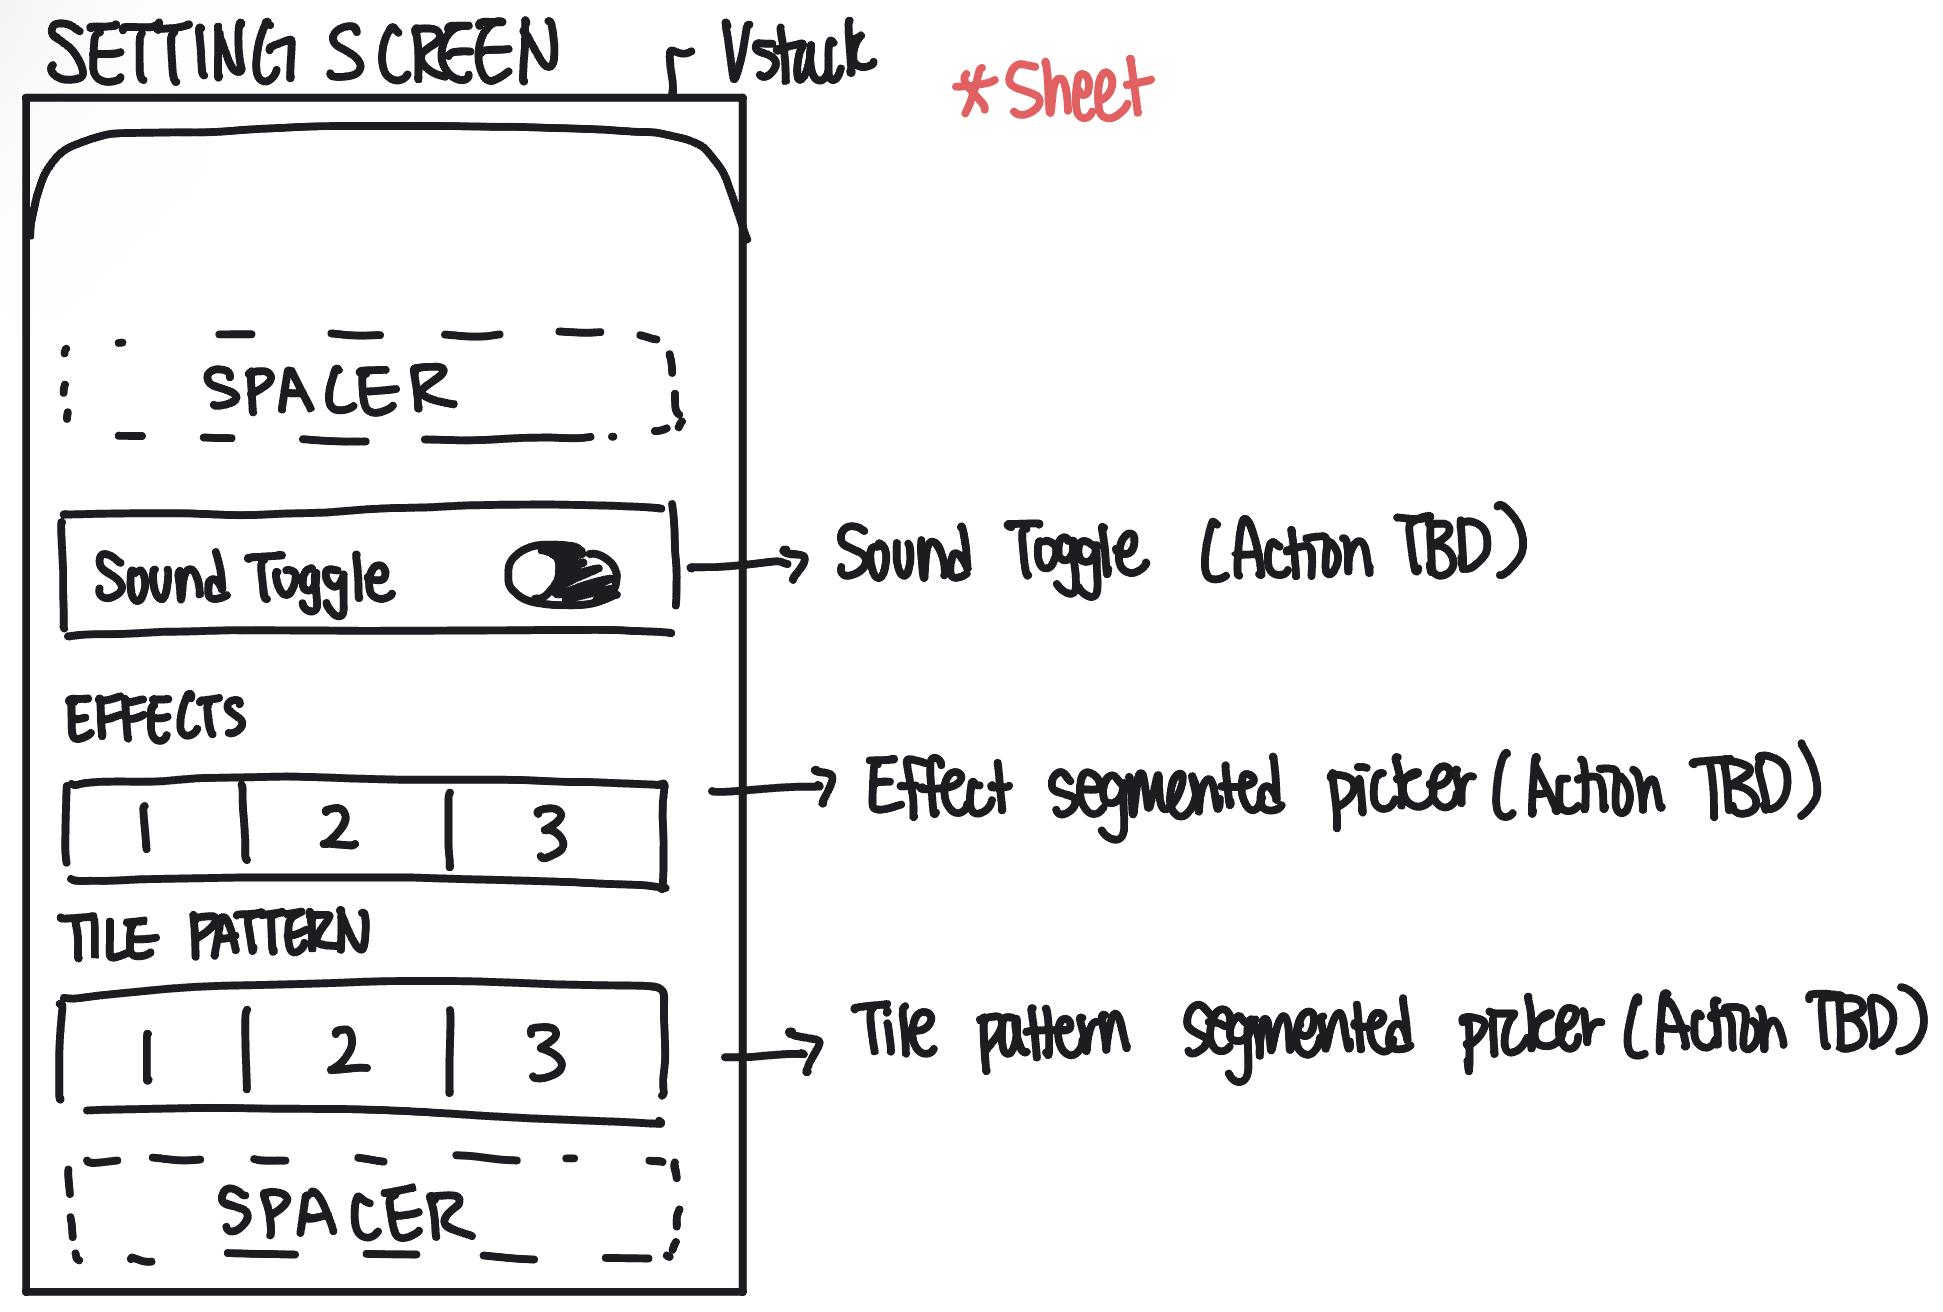 SETTING SCREEN
Vstack
*Sheet
SPACER
Sound Toggle
Sound Toggle (Action TBD)
EFFECTS
1 2 3
Effect segmented picker (Action TBD)
TILE PATTERN
1 2 3
Tile pattern segmented picker (Action TBD)
SPACER